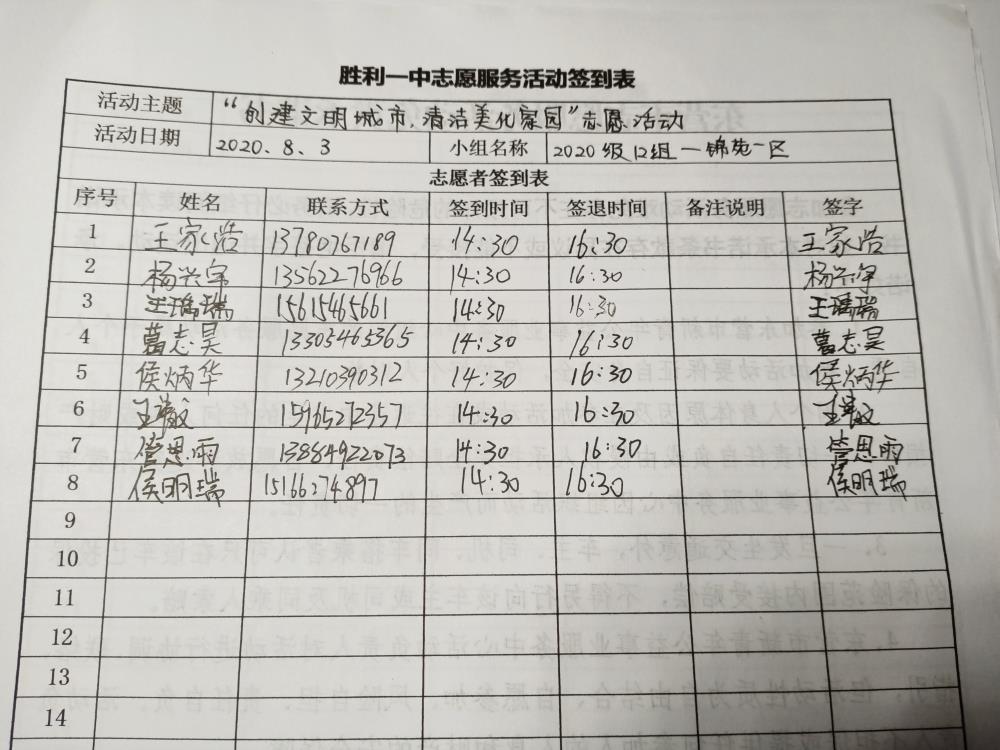 胜利一中志愿服务活动签到表
活动主题 “创建文明城市,清洁美化家园”志愿活动
活动日期 2020.8.3 小组名称 2020级12组一锦苑一区
志愿者签到表
序号 姓名 联系方式 签到时间 签退时间 备注说明 签字
1 王家浩 13780767189 14:30 16:30 王家浩
2 杨兴宇 13562276966 14:30 16:30 杨兴宇
3 王瑀瑞 15615465661 14:30 16:30 王瑀瑞
4 葛志昊 13305465365 14:30 16:30 葛志昊
5 侯炳华 13210390312 14:30 16:30 侯炳华
6 15965272357 14:30 16:30
7 管思雨 13884922073 14:30 16:30 管思雨
8 侯明瑞 15166274897 14:30 16:30 侯明瑞
9
10
11
12
13
14